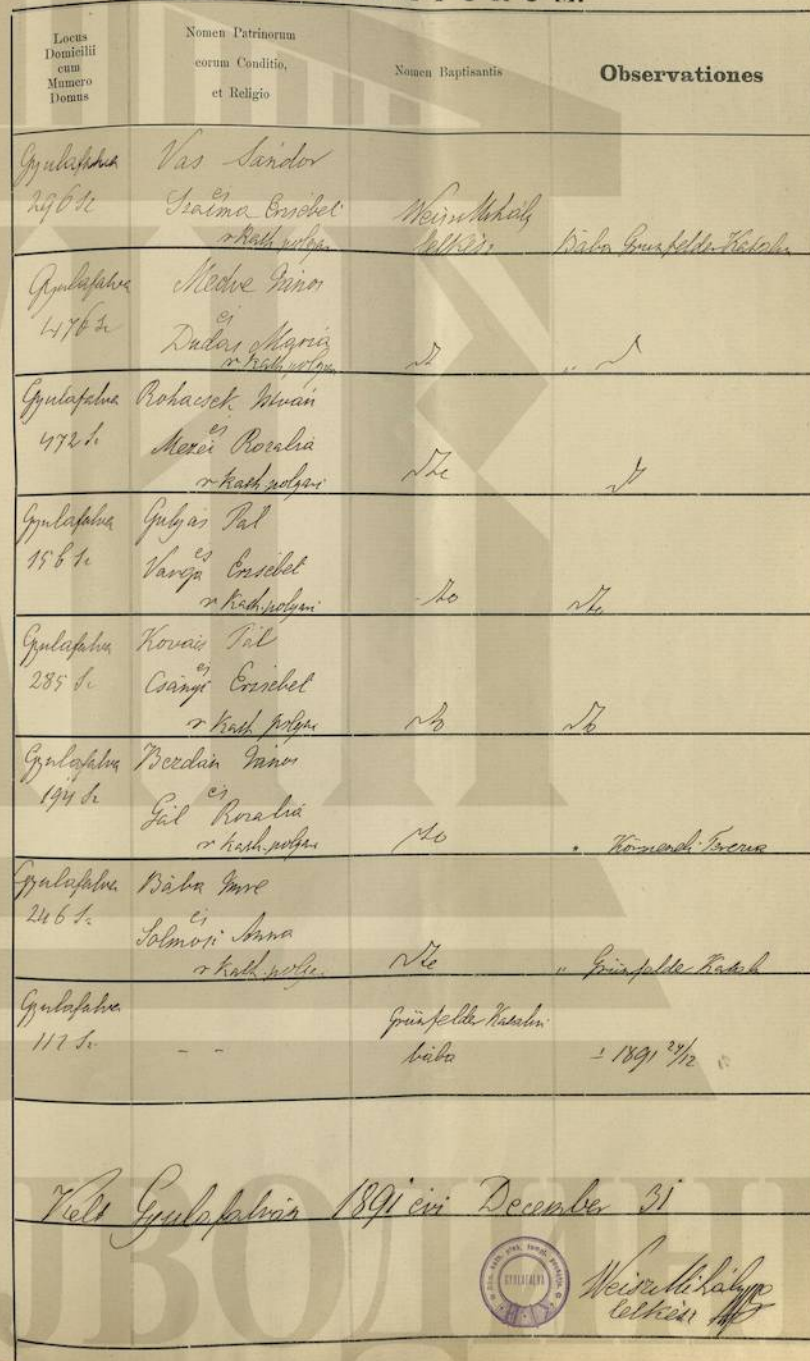 Locus
Domicilii
cum
Mumero
Domus
Nomen Patrinorum
eorum Conditio,
et Religio
Nomen Baptisantis
Observationes
Gyulafalva
296 Sz
Vas Sándor
és
Szalma Erzsébet
r kath polgári
Weisz Mihály
lelkész
Bába Grünfelder Katalin
Gyulafalva
476 Sz
Medve János
és
Dudás Mária
r kath polgári
dt
" dt
Gyulafalva
472 Sz
Rohacsek István
és
Mezei Rozália
r kath polgári
dto
dt
Gyulafalva
156 Sz
Gulyás Pál
és
Varga Erzsébet
r kath. polgári
dto
dto
Gyulafalva
285 Sz
Kovács Pál
és
Csányi Erzsébet
r kath polgári
dto
dto
Gyulafalva
194 Sz
Bezdán János
és
Gál Rozália
r kath. polgári
dto
" Körmendi Terezia
Gyulafalva
246 Sz
Bába Imre
és
Solmosi Anna
r kath. polgá
dto
" Grünfelder Katali
Gyulafalva
112 Sz
- -
Grünfelder Katalin
bába
1891 24/12
Kelt Gyulafalván 1891 évi December 31
GYULAFALVA
Weisz Mihály
lelkész